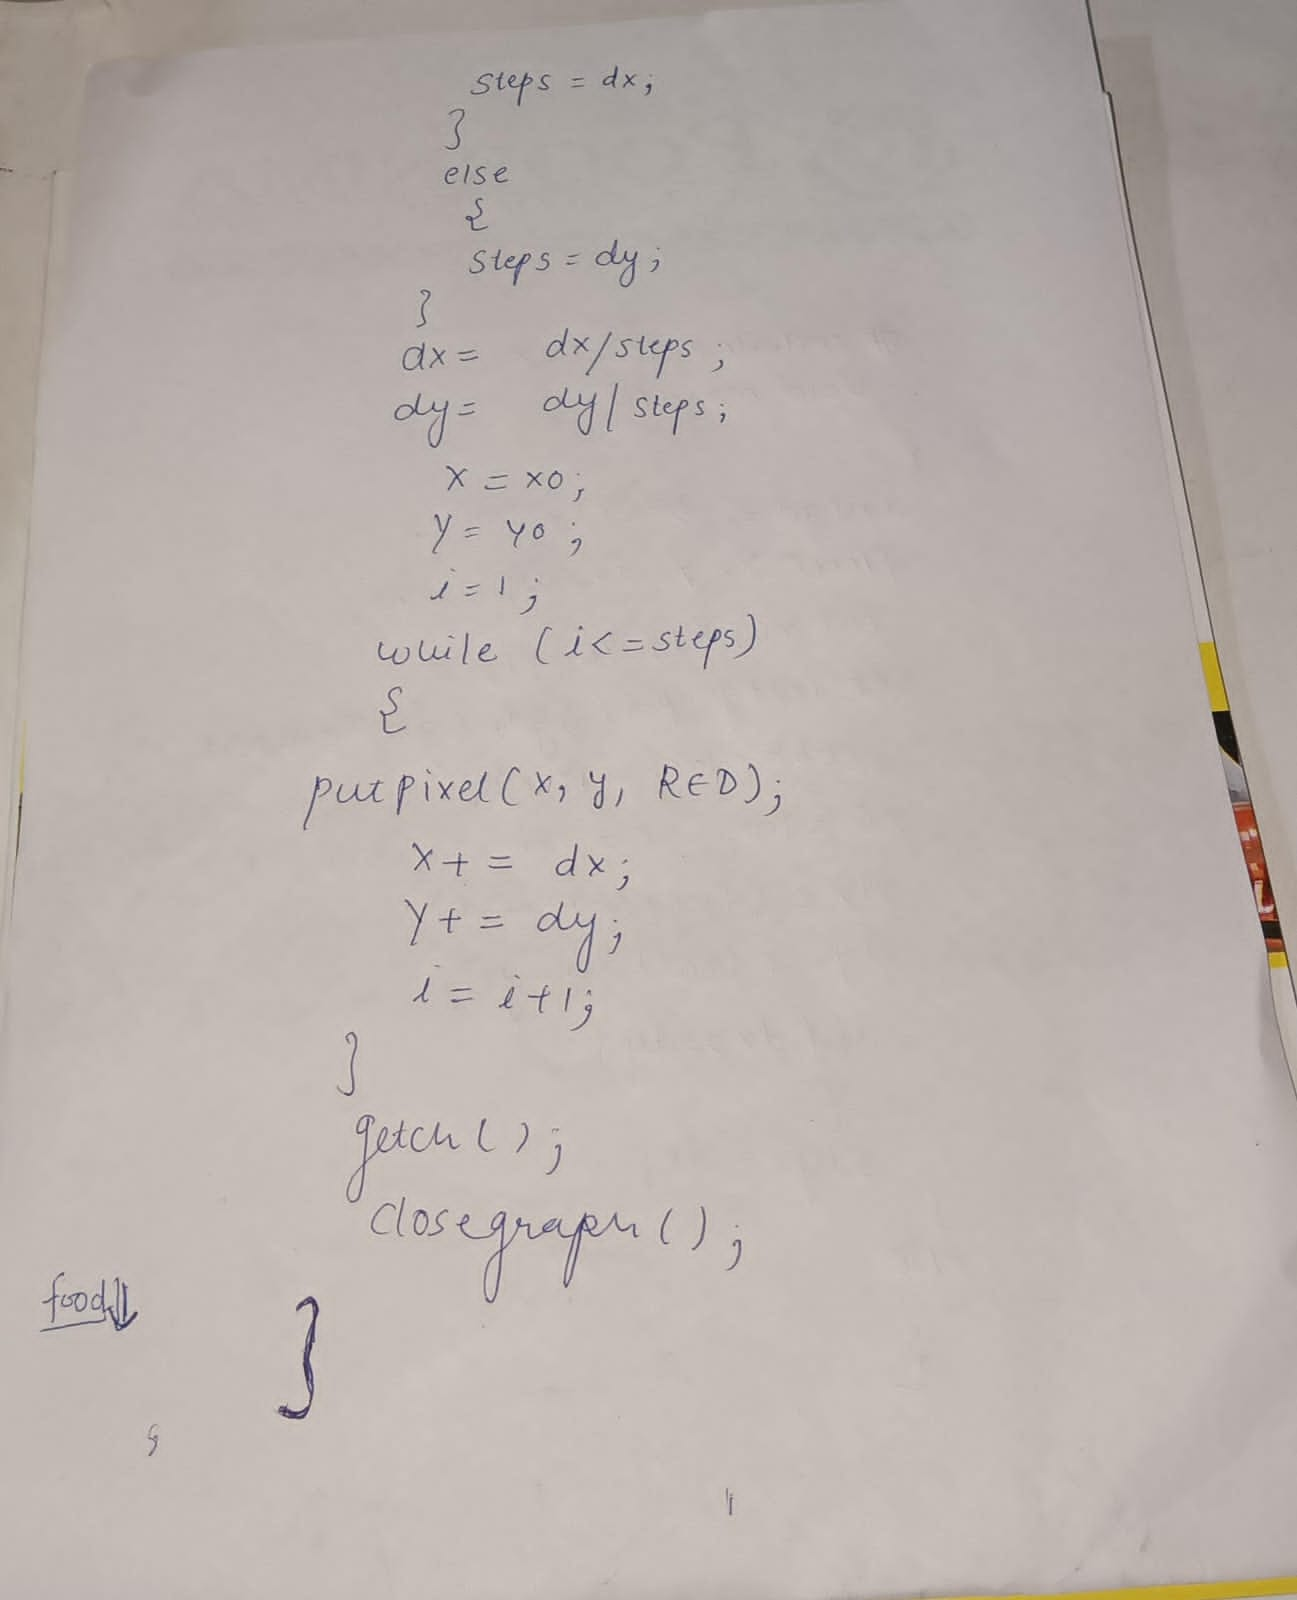 steps = dx;
}
else
{
steps = dy;
}
dx = dx/steps;
dy = dy/steps;
x = x0;
y = y0;
i = 1;
while (i<=steps)
{
putpixel(x, y, RED);
x+ = dx;
y+ = dy;
i = i+1;
}
getch();
closegraph();
food↓
}